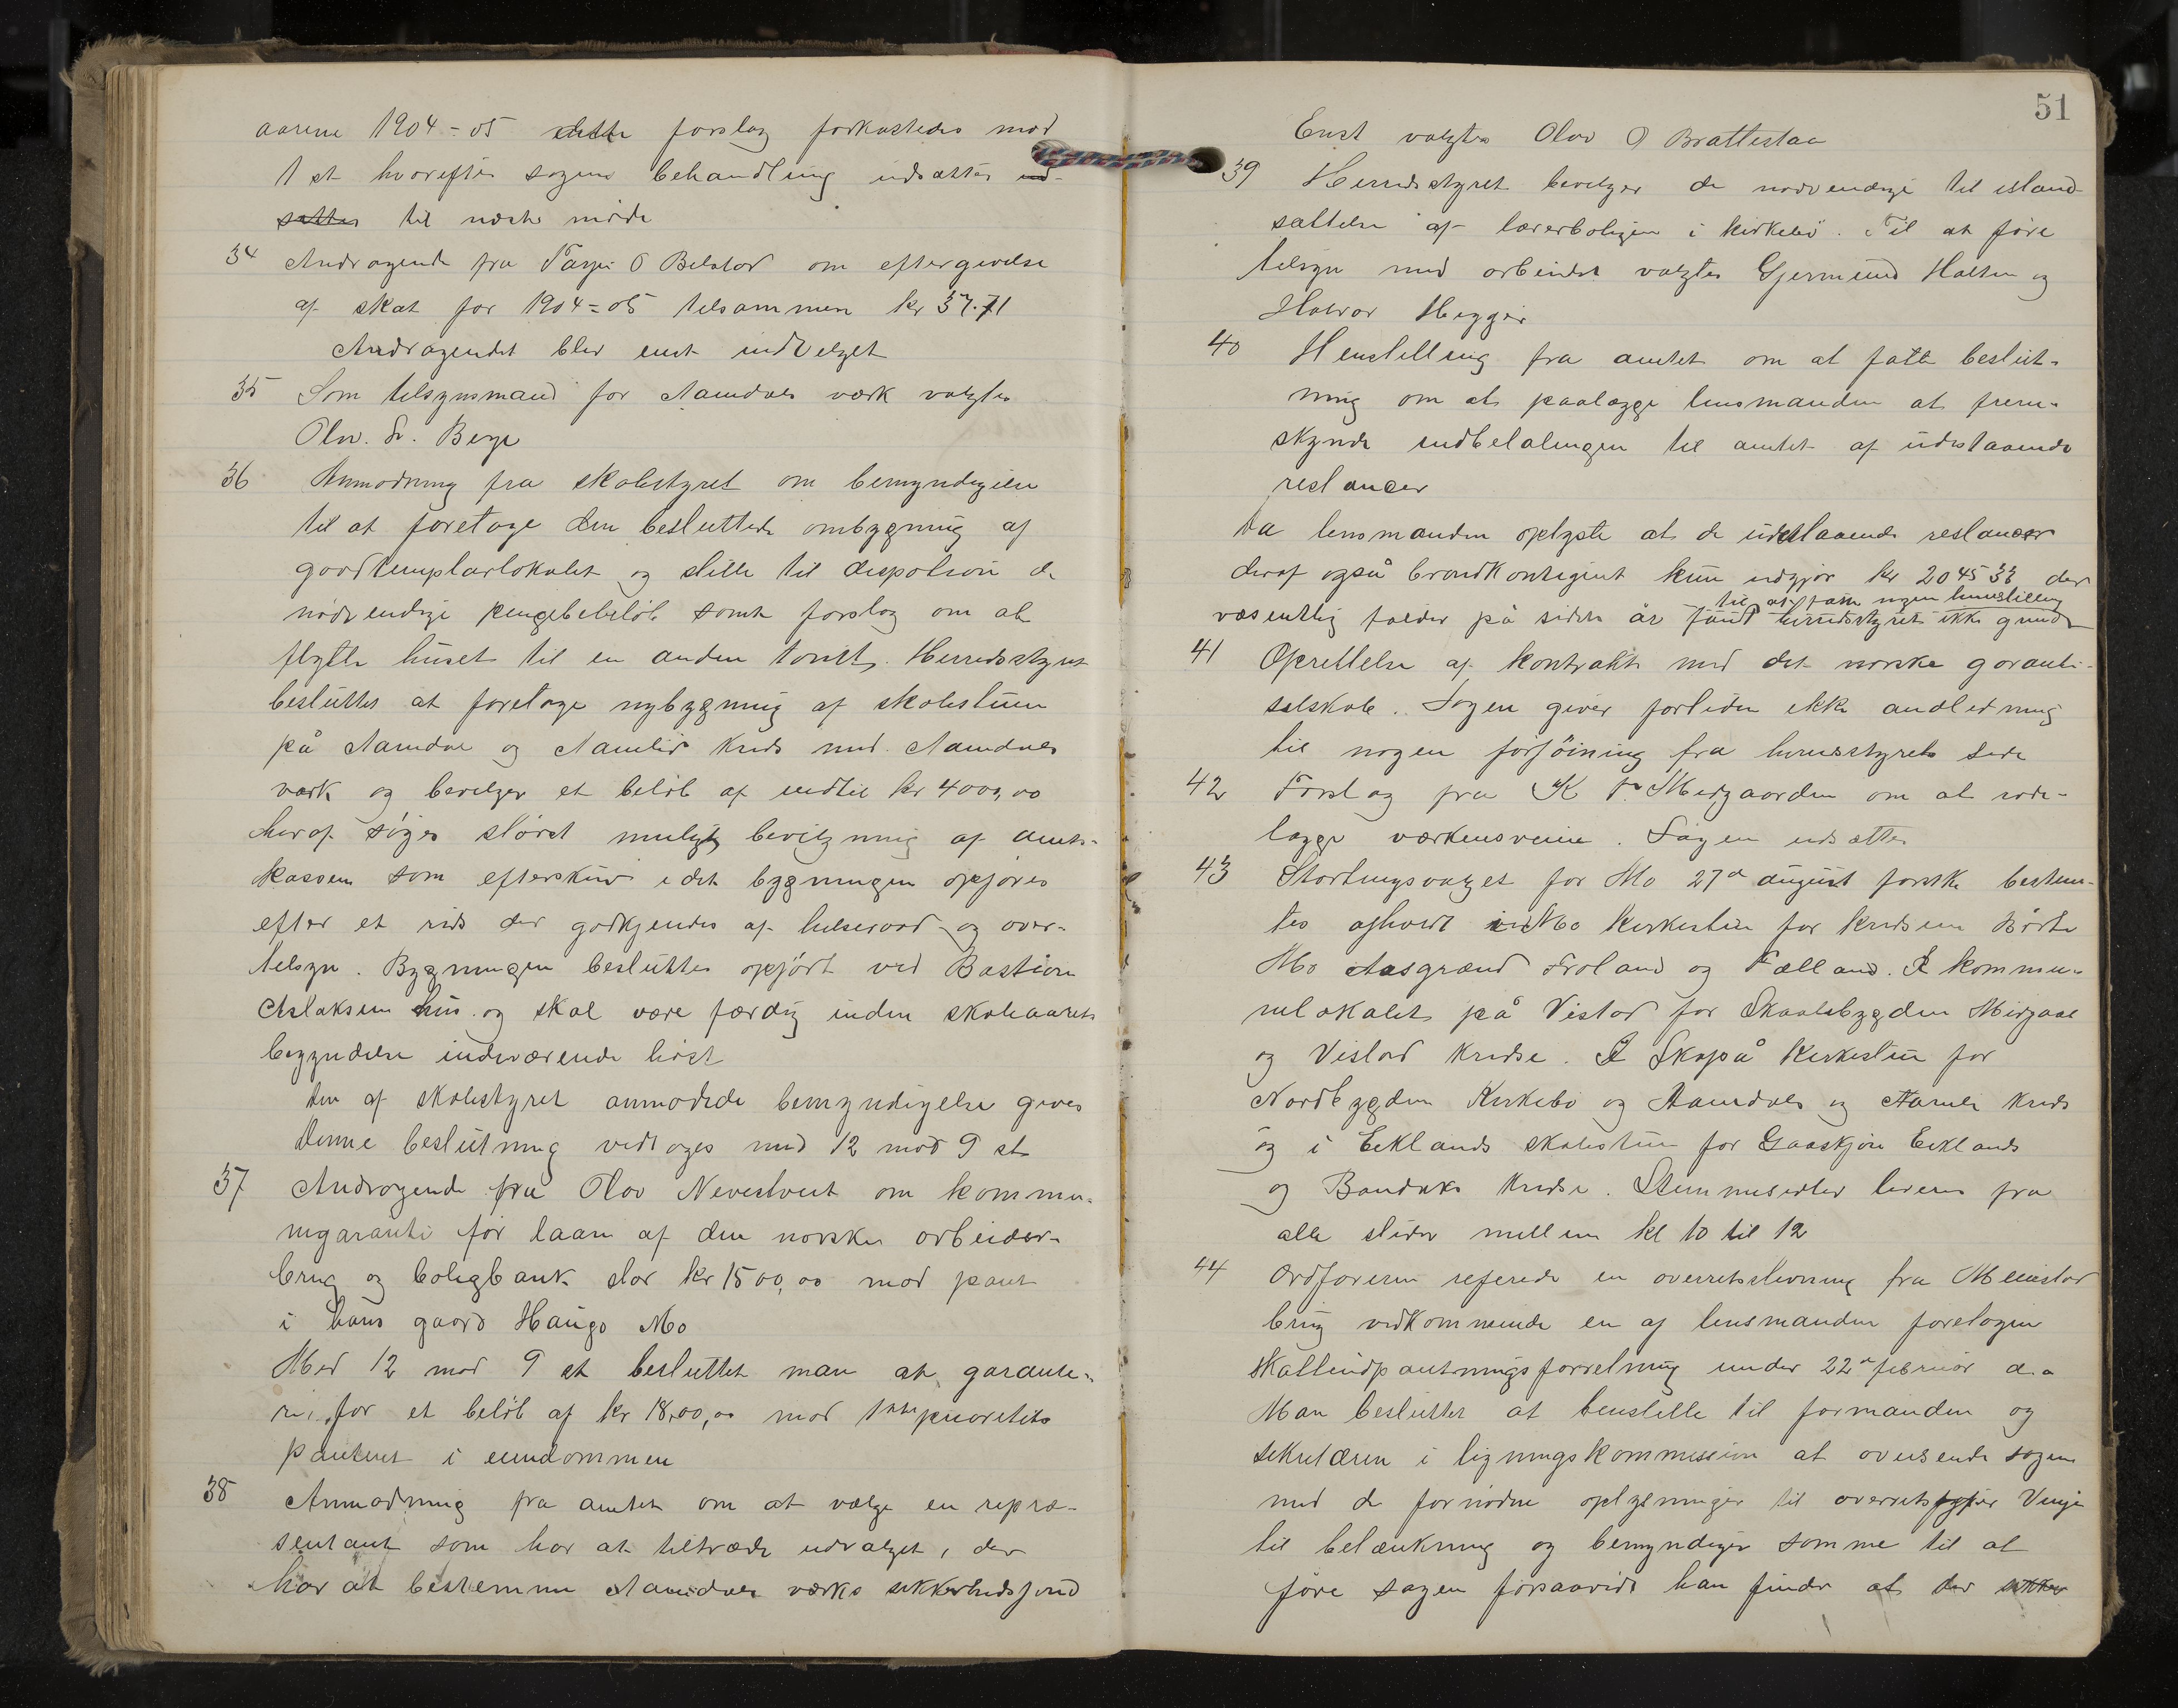 aarene 1904-05 dette forslag forkastedes mod
1 st hvorefter sagens behandling udsættes ud-
sættes til næste møde
34 Andragende fra Tarjei O Belstad om eftergivelse
af skat for 1904-05 tilsammen kr 37.71
Andragendet blev enst indvilget
35 Som tilsynsmand for Aamdals værk valgtes
Olav. Sr. Berge
36 Anmodning fra skolestyret om bemyndigelse
til at foretage den besluttede ombygning af
goodtemplarlokalet og stille til dispotion de
nødvendige pengebebeløb samt forslag om at
flytte huset til en anden tomt. Herredsstyret
besluttes at foretage nybygning af skolestuen
på Aamdal og Aamlid kreds med Aamdals
værk og bevilger et beløb af indtil kr 4000,00
heraf søges størst muligt bevilgning af amts-
kassen som efterskud idet bygningen opføres
efter et rids der godkjendes af helseraad og over-
tilsyn. Bygningen besluttes opført ved Bastian
Aslaksen hus og skal være færdig inden skoleaarets
begyndelse indeværende høst
Den af skolestyret anmodede bemyndigelse gives
Denne beslutning vedtoges med 12 mod 9 st
37 Andragende fra Olav Nevestveit om kommu-
negaranti for laan af den norske arbeider-
brug og boligbank stor kr 1500,00 mod pant
i hans gaard Haugo Mo
Med 12 mod 9 st besluttet man at garante-
re for et beløb af kr 1800,00 mod 1ste prioritets
panteret i eiendommen
38 Anmodning fra amtet om at vælge en repræ-
sentant som har at tiltræde udvalget, der
har at bestemme Aamdals værks sikkerhedsfond
51
Enst valgtes Olav O Brattestaa
39 Herredsstyret bevilger de nødvendige til istand-
sættelse af lærerboligen i Kirkebø. Til at føre
tilsyn med arbeidet valgtes Gjermund Holten og
Halvor Heggei
40 Henstilling fra amtet om at fatte beslut-
ning om at paalægge lensmanden at frem-
skynde indbetalingen til amtet af udestaaende
restancer
Da lensmanden oplyste at de udestaaende restancer
deraf også brandkontigent kun udgjør kr 2045 33 der
til at fatte nogen henstilling
væsentlig falder på sidste år fandt herredsstyret ikke grund
41 Oprettelse af kontrakt med det norske garanti-
selskab. Sagen giver fortiden ikke andledning
til nogen forføining fra herredsstyrets side
42 Forslag fra K T. Midgaarden om at rode-
lægge værkensveiene. Sagen udsættes
43 Stortingsvalget for Mo 27de august førstk bestem-
tes afholdt i Mo kirkestue for kredsene Børte
Mo Aasgrænd Froland og Fælland. I kommu-
nelokalet på Vistad for Skaalsbygden Midgaal
og Vistad kredse. I Skafså kirkestue for
Nordbygden Kirkebø og Aamdals og Aamli kreds
og i Eeklands skolestue for Gaaskjøn Eeklands
og Bandaks kredse. Stemmesedler leveres fra
alle steder mellem kl 10 til 12
44 Ordføreren referede en overretsstevning fra Meiestad
brug vedkommende en af lensmanden foretagen
skatteindpantningsforretning under 22de februar d.a
Man besluttet at henstille til formanden og
sekretæren i ligningskommission at oversende sagen
med de fornødne oplysninger til overretssagfør Vinje
til betænkning og bemyndiger somme til at
føre sagen forsaavidt han finder at der